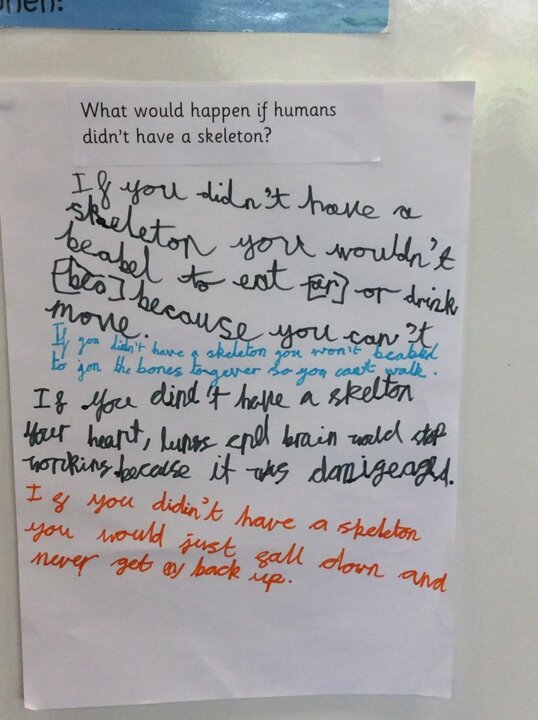 What would happen if humans
didn't have a skeleton?
If you didn't have a
skeleton you wouldn't
beabel to eat [or] or drink
[bea] because you can't
move.
If you didn't have a skeleton you won't beabel
to jon the bones togever so you cant walk.
If you dind't have a skelton
your heart, lungs and brain would stop
working because it was damigeaged.
If you didin't have a skeleton
you would just fall down and
never get back up.